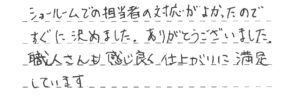 ショールームでの担当者の対応がよかったので
すぐに決めました。ありがとうございました。
職人さんも感じ良く仕上がりに満足
しています